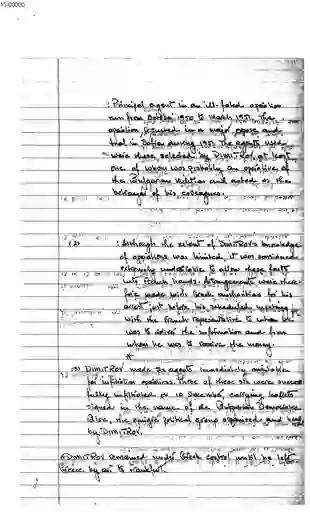 : Principal agent in an ill-fated operation
run from October 1950 to March 1951. The
operation resulted in a major expose and
trial in Sofia during 1951. The agents used
were those selected by DIMITROV, at least
one of whom was probably an operative of
the Bulgarian Militia and acted as the
betrayer of his colleagues.
(2) : Although the extent of DIMITROV's knowledge
of operations was limited, it was considered
extremely undesirable to allow these facts
into French hands. Arrangements were there-
fore made with Greek authorities for his
arrest just before his scheduled meeting
with the French representative to whom he
was to deliver the information and from
whom he was to receive the money.
*
(3) DIMITROV made six agents immediately available
for infiltration operations. Three of these six were success-
fully infiltrated on 10 December, carrying leaflets
signed in the name of the Bulgarian Democratic
, the emigre political group organized and
by DIMITROV.
DIMITROV remained under Greek control until he left
Greece by air to Frankfurt.